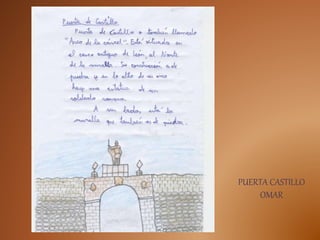 Puerta de Castillo
Puerta de Castillo o también llamado
"Arco de la cárcel". Está situada en
el casco antiguo de león, al
de la muralla. Su construcción es de
piedra y en lo alto de su arco
hay una estatua de un
soldado romano.
A su lado, está la
muralla que también es de piedra.
PUERTA CASTILLO
OMAR